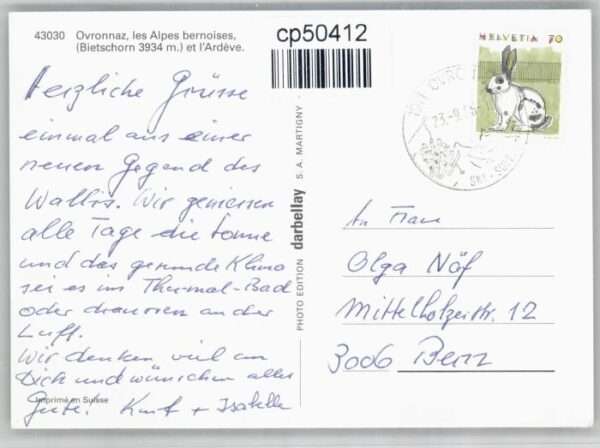 43030 Ovronnaz, les Alpes bernoises,
(Bietschorn 3934 m.) et l'Ardève.
cp50412
HELVETIA 70
Herzliche Grüsse
einmal aus einer
neuen Gegend des
Wallis. Wir geniessen
alle Tage die Sonne
und das gesunde Klima
sei es im Thermal-Bad
oder draussen an der
Luft.
Wir denken viel an
Dich und wünschen alles
Gute. Kurt + Isabella
Imprimé en Suisse
PHOTO EDITION darbellay S. A. MARTIGNY
An Frau
Olga Näf
Mittelholzerstr. 12
3006 Bern